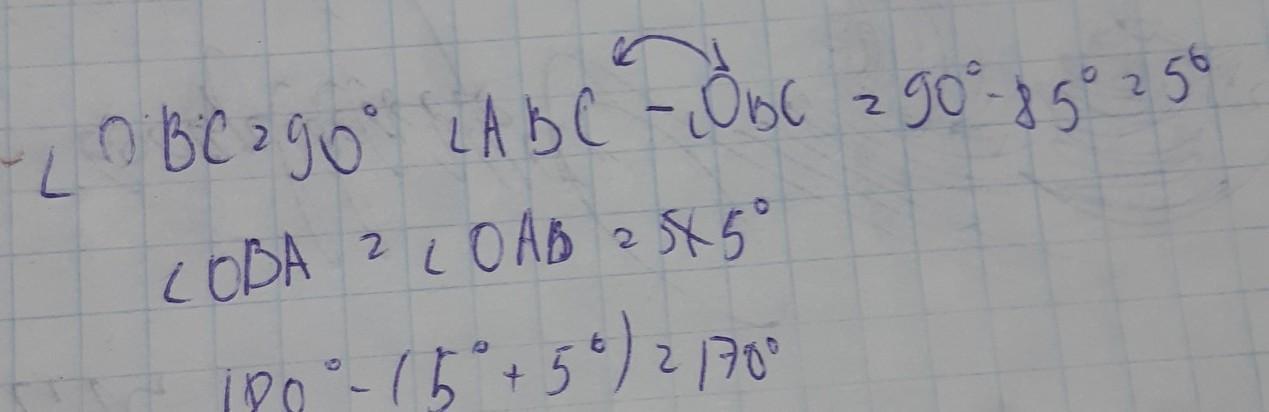 ∠OBC=90° ∠ABC -∠OBC =90°-85°=5°
∠OBA = ∠OAB = 5°
180°-(5°+5°)=170°